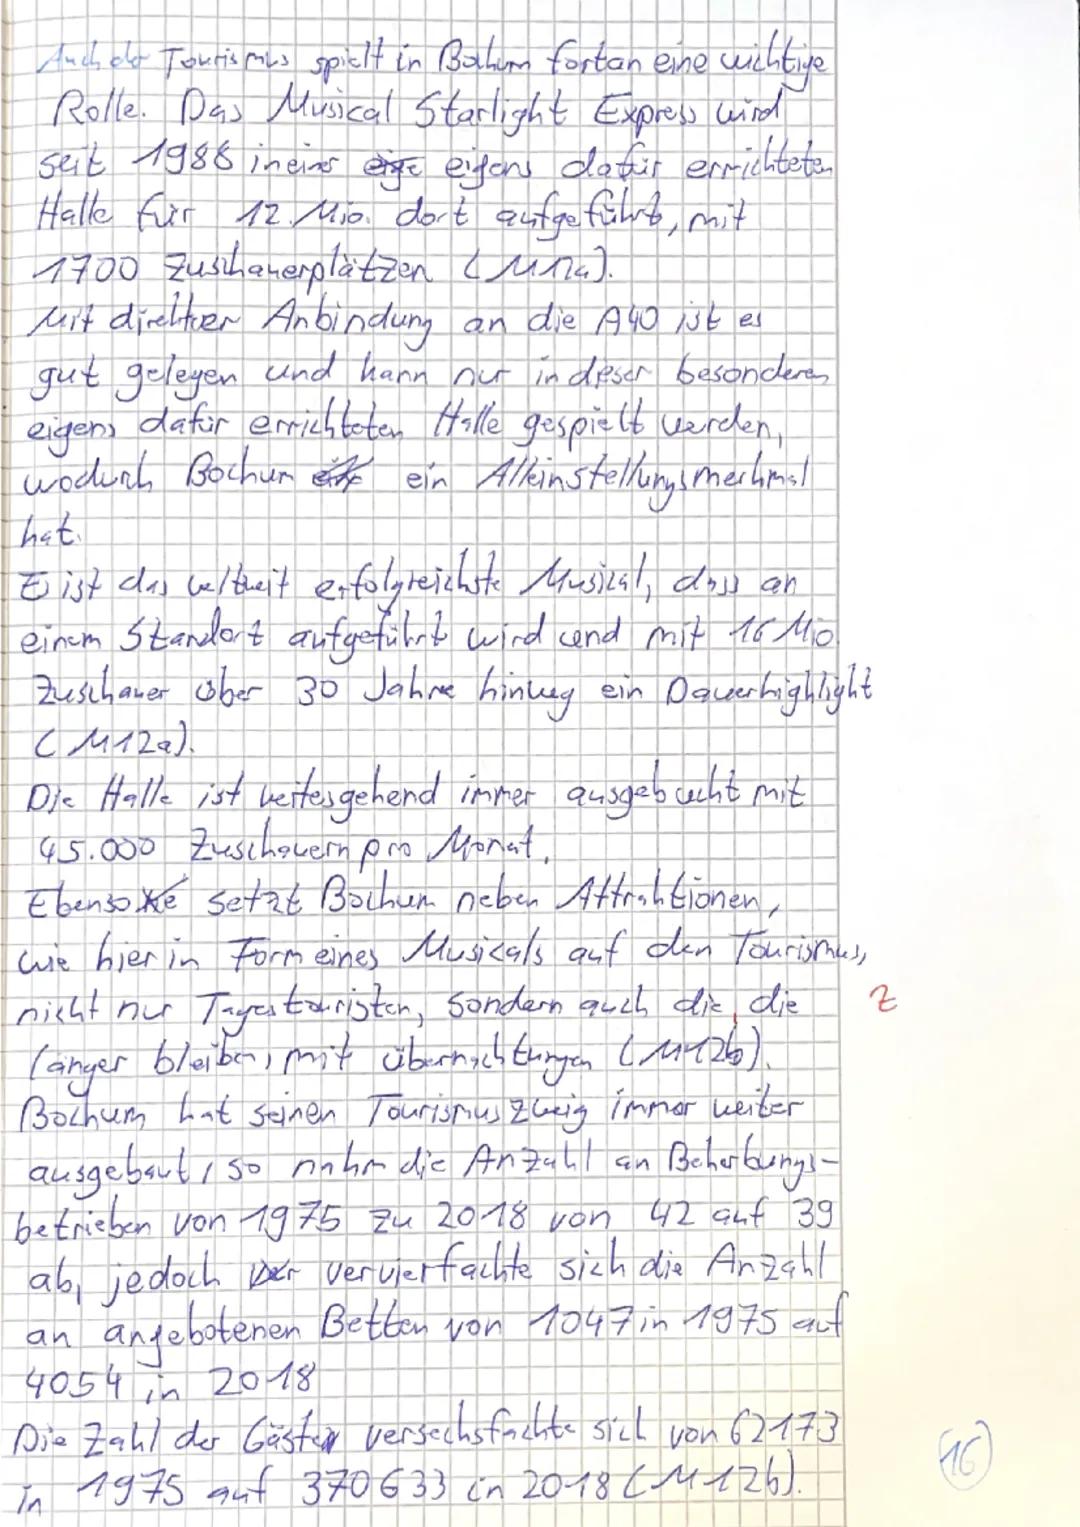 Auch der Tourismus spielt in Bochum fortan eine wichtige
Rolle. Das Musical Starlight Express wird
seit 1988 in einer eigens dafür errichteten
Halle für 12. Mio. dort aufgeführt, mit
1700 Zuschauerplätzen (M12a).
Mit direkter Anbindung an die A40 ist es
gut gelegen und kann nur in dieser besonderen
eigens dafür errichteten Halle gespielt werden,
wodurch Bochum ein Alleinstellungsmerkmal
hat.
Es ist das weltweit erfolgreichste Musical, dass an
einem Standort aufgeführt wird und mit 16 Mio.
Zuschauer über 30 Jahre hinweg ein Dauerhighlight
(M12a).
Die Halle ist weitesgehend immer ausgebucht mit
45.000 Zuschauern pro Monat.
Ebenso setzt Bochum neben Attraktionen,
wie hier in Form eines Musicals auf den Tourismus,
nicht nur Tagestouristen, sondern auch die, die Z
länger bleiben, mit übernachtungen (M12b).
Bochum hat seinen Tourismuszweig immer weiter
ausgebaut, so nahm die Anzahl an Beherbungs-
betrieben von 1975 zu 2018 von 42 auf 39
ab, jedoch vervierfachte sich die Anzahl
an angebotenen Betten von 1047 in 1975 auf
4054 in 2018
Die Zahl der Gäste versechsfachte sich von 62173
in 1975 auf 370633 in 2018 (M12b).
16